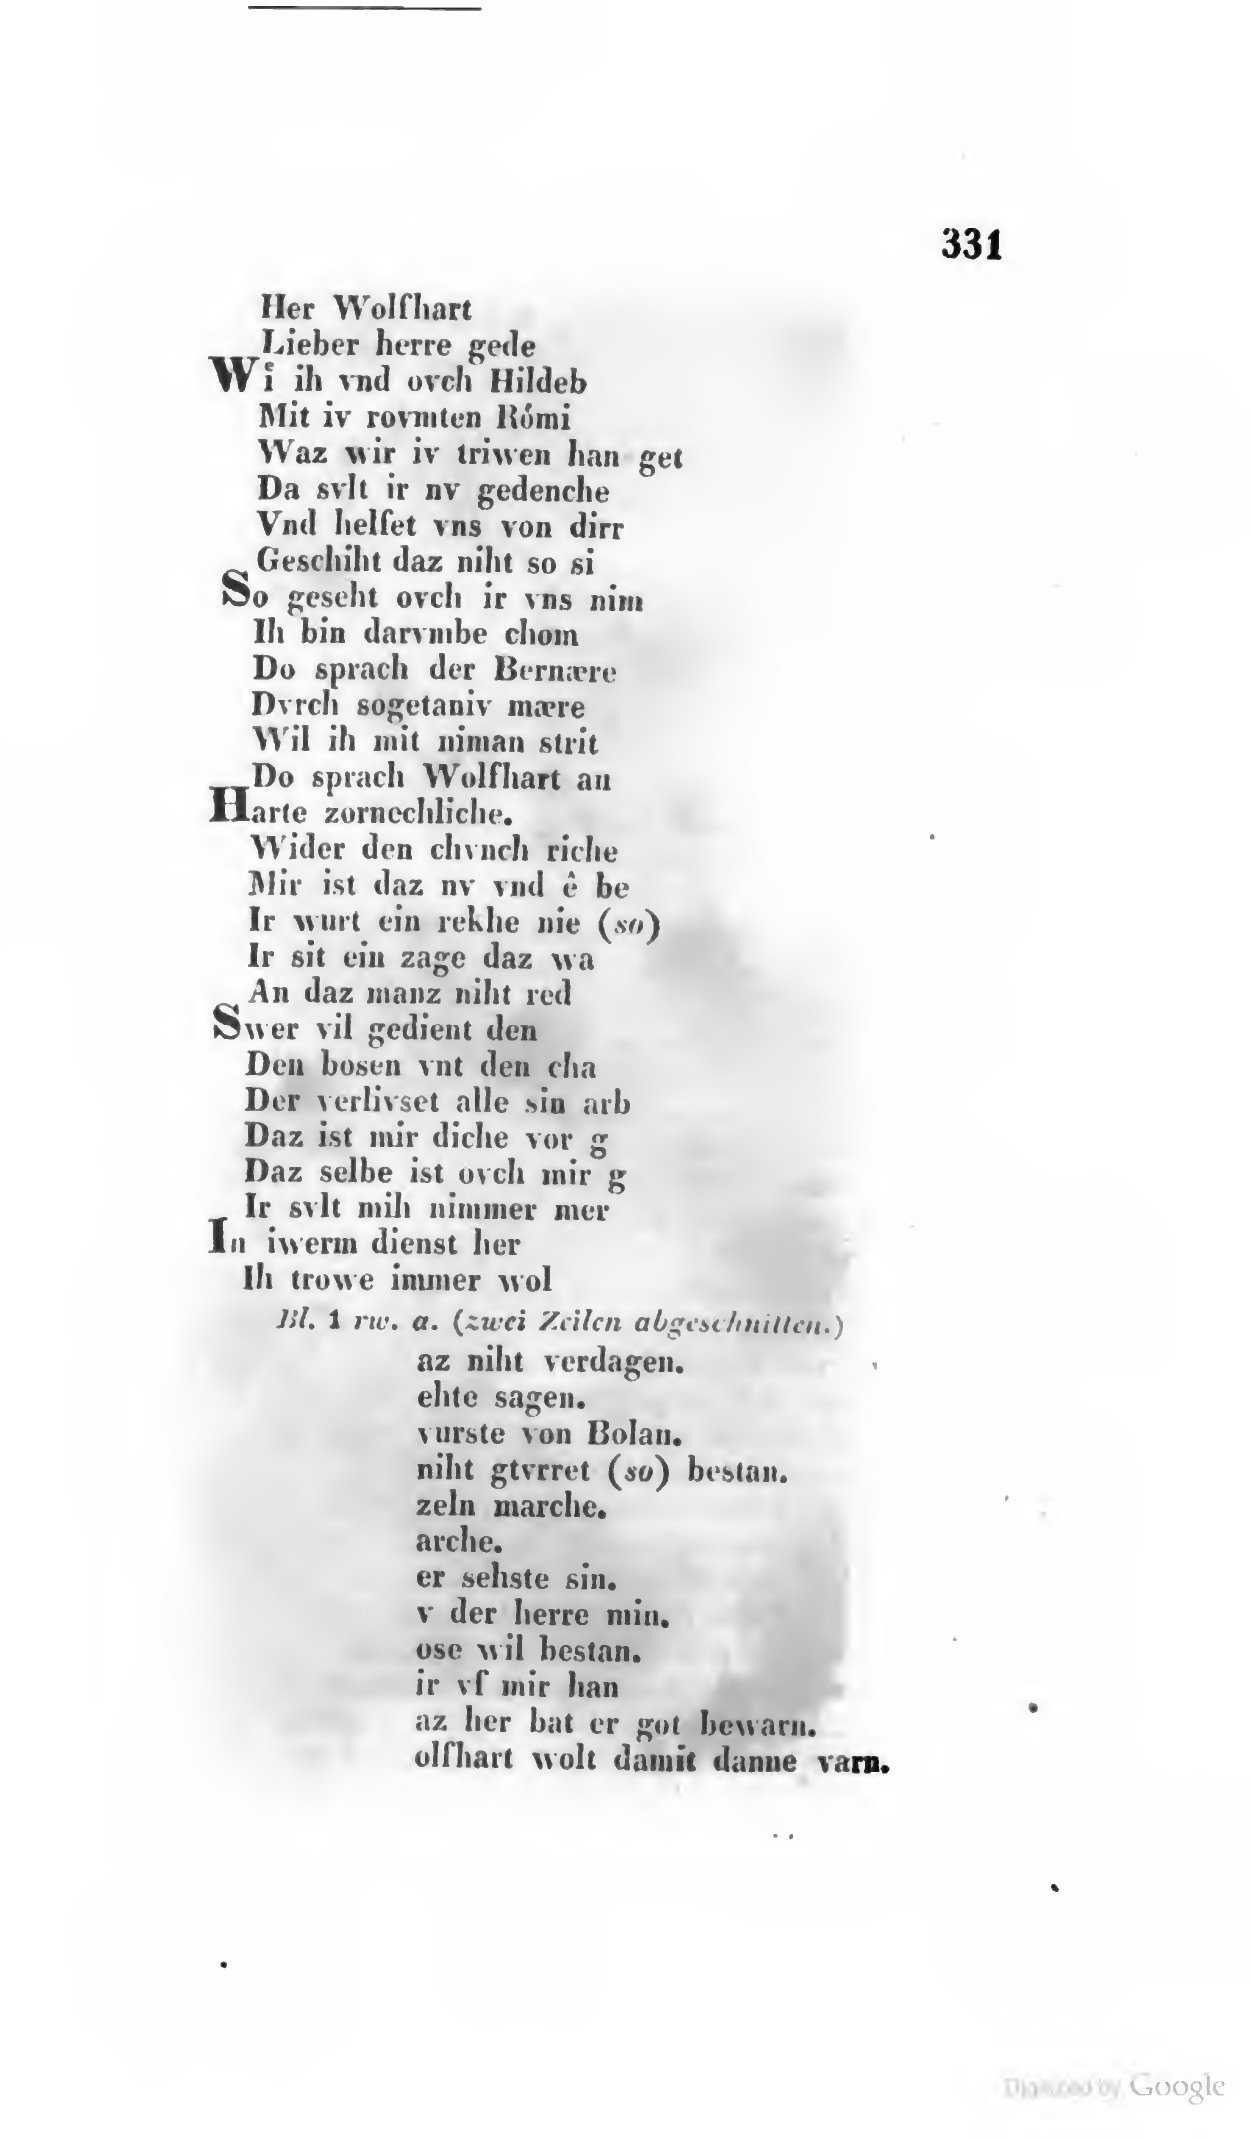 331
Her Wolfhart
Lieber herre gede
Wiͤ ih vnd ovch Hildeb
Mit iv rovmten Rómi
Waz wir iv triwen han get
Da svlt ir nv gedenche
Vnd helfet vns von dirr
Geschiht daz niht so si
So geseht ovch ir vns nim
Ih bin darvmbe chom
Do sprach der Bernære
Dvrch sogetaniv mære
Wil ih mit niman strit
Do sprach Wolfhart an
Harte zornechliche.
Wider den chvnch riche
Mir ist daz nv vnd ê be
Ir wurt ein rekhe nie (so)
Ir sit ein zage daz wa
An daz manz niht red
Swer vil gedient den
Den bosen vnt den cha
Der verlivset alle sin arb
Daz ist mir diche vor g
Daz selbe ist ovch mir g
Ir svlt mih nimmer mer
In iwerm dienst her
Ih trowe immer wol
Bl. 1 rw. a. (zwei Zeilen abgeschnitten.)
az niht verdagen.
ehte sagen.
vurste von Bolan.
niht gtvrret (so) bestan.
zeln marche.
arche.
er sehste sin.
v der herre min.
ose wil bestan.
ir vf mir han
az her bat er got bewarn.
olfhart wolt damit danne varn.
Digitized by Google